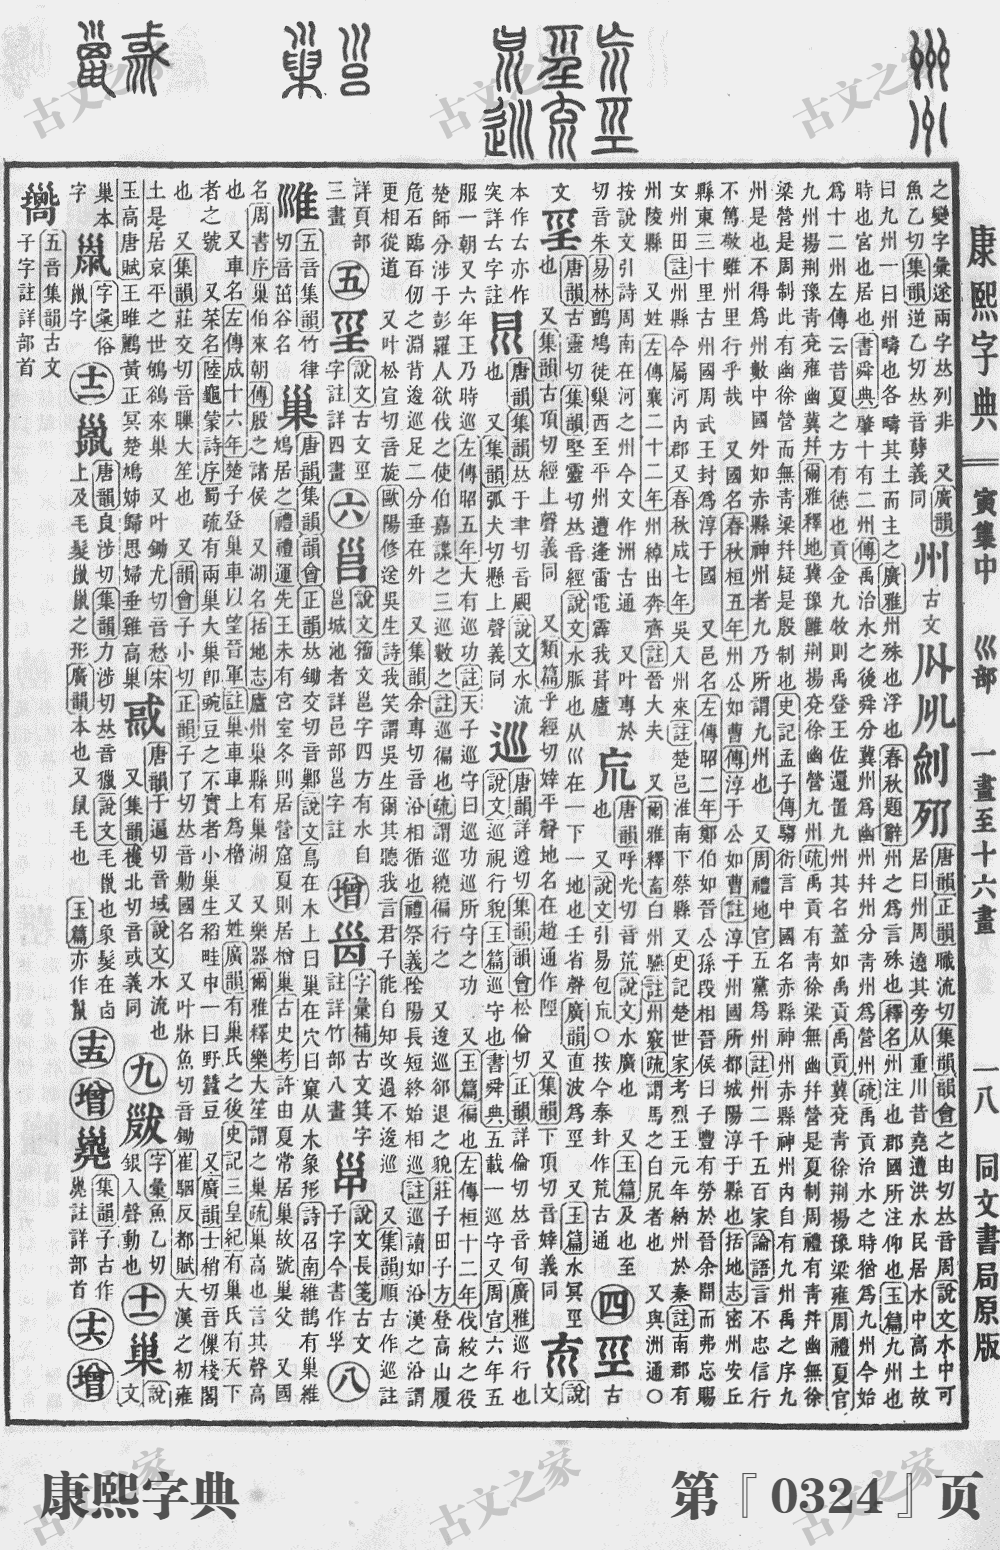 康熙字典 寅集中 巛部 一畫至十六畫 一八 同文書局原版
之變字彙逡兩字𠀤列非 又廣韻
魚乙切集韻逆乙切𠀤音
義同
州古文
唐韻正韻職流切集韻韻會之由切𠀤音周說文水中可
居曰州周遶其旁从重川昔堯遭洪水民居水中高土故
曰九州一曰州疇也各疇其土而主之廣雅州殊也浮也春秋題辭州之爲言殊也釋名州注也郡國所注仰也玉篇九州也
時也宮也居也書舜典肇十有二州傳禹治水之後舜分冀州爲幽州幷州分靑州爲營州疏禹貢治水之時猶爲九州今始
爲十二州左傳云昔夏之方有德也貢金九牧則禹登王佐還置九州其名蓋如禹貢禹貢冀兗靑徐荆揚豫梁雍周禮夏官
九州揚荆豫靑兗雍幽冀幷爾雅釋地冀豫雝荆揚兗徐幽營九州疏禹貢有靑徐梁無幽幷營是夏制周禮有靑幷幽無徐
梁營是周制此有幽徐營而無靑梁幷疑是殷制也史記孟子傳騶衍言中國名赤縣神州赤縣神州內自有九州禹之序九
州是也不得爲州數中國外如赤縣神州者九乃所謂九州也 又周禮地官五黨爲州註州二千五百家論語言不忠信行
不篤敬雖州里行乎哉 又國名春秋桓五年州公如曹傳淳于公如曹註淳于州國所都城陽淳于縣也括地志密州安丘
縣東三十里古州國周武王封爲淳于國 又邑名左傳昭二年鄭伯如晉公孫段相晉侯曰子豐有勞於晉余聞而弗忘賜
女州田註州縣今屬河內郡又春秋成七年吳入州來註楚邑淮南下蔡縣 又史記楚世家考烈王元年納州於秦註南郡有
州陵縣 又姓左傳襄二十二年州綽出奔齊註晉大夫 又爾雅釋畜白州驠註州竅疏謂馬之白尻者也 又與洲通○
按說文引詩周南在河之州今文作洲古通 又叶專於
切音朱易林鸇鳩徙巢西至平州遭逢雷電霹我葺廬
巟
唐韻呼光切音荒說文水廣也 又玉篇及也至
也 又說文引易包巟○按今泰卦作荒古通
四
巠古文
唐韻古靈切集韻堅靈切𠀤音經說文水脈也从巛在一下一地也壬省聲廣韻直波爲巠 又玉篇水冥巠
也 又集韻古頂切經上聲義同 又類篇乎經切婞平聲地名在趙通作陘 又集韻下頂切音婞義同
㐬
說文
本作𠫓亦作
突詳𠫓字註
唐韻集韻𠀤于聿切音䬍說文水流
也 又集韻弧犬切懸上聲義同
巡
唐韻詳遵切集韻韻會松倫切正韻詳倫切𠀤音旬廣雅巡行也
說文巡視行貌玉篇巡守也書舜典五載一巡守又周官六年五
服一朝又六年王乃時巡左傳昭五年大有巡功註天子巡守曰巡功巡所守之功 又玉篇徧也左傳桓十二年伐絞之役
楚師分涉于彭羅人欲伐之使伯嘉諜之三巡數之註巡徧也疏謂巡繞徧行之 又逡巡郤退之貌莊子田子方登高山履
危石臨百仞之淵背逡巡足二分垂在外 又集韻余專切音沿相循也禮祭義隂陽長短終始相巡註巡讀如沿漢之沿謂
更相從道 又叶松宣切音旋歐陽修送吳生詩我笑謂吳生爾其聽我言君子能自知改過不逡巡 又集韻順古作巡註
詳頁部
三畫
五
說文古文巠
字註詳四畫
六
𡿿
說文籀文邕字四方有水自
邕城池者詳邕部邕字註
增
字彙補古文箕字
註詳竹部八畫
說文長箋古文
子字今書作㜽
八
五音集韻竹律
切音茁谷名
巢
唐韻集韻韻會正韻𠀤鋤交切音鄛說文鳥在木上曰巢在穴曰窠从木象形詩召南維鵲有巢維
鳩居之禮禮運先王未有宮室冬則居營窟夏則居橧巢古史考許由夏常居巢故號巢父 又國
名周書序巢伯來朝傳殷之諸侯 又湖名括地志廬州巢縣有巢湖 又樂器爾雅釋樂大笙謂之巢疏巢高也言其聲高
也 又車名左傳成十六年楚子登巢車以望晉軍註巢車車上爲櫓 又姓廣韻有巢氏之後史記三皇紀有巢氏有天下
者之號 又菜名陸龜蒙詩序蜀疏有兩巢大巢卽豌豆之不實者小巢生稻畦中一曰野蠶豆 又廣韻士稍切音僳棧閣
也 又集韻莊交切音䫜大笙也 又韻會子小切正韻子了切𠀤音勦國名 又叶牀魚切音鋤崔駰反都賦大漢之初雍
土是居哀平之世鴝鵒來巢 又叶鋤尤切音愁宋
玉高唐賦王雎鸝黃正冥楚鳩姊歸思婦垂雞高巢
唐韻于逼切音域說文水流也
又集韻穫北切音或義同
九
字彙魚乙切
銀入聲動也
十一
巢
說文
巢本
字
字彙俗
巤字
十二
巤
唐韻良涉切集韻力涉切𠀤音獵說文毛巤也象髮在囟
上及毛髮巤巤之形廣韻本也又鼠毛也 玉篇亦作䰕
十五
增
集韻子古作
註詳部首
十六
增
五音集韻古文
子字註詳部首
古文之家
康熙字典
第『0324』页